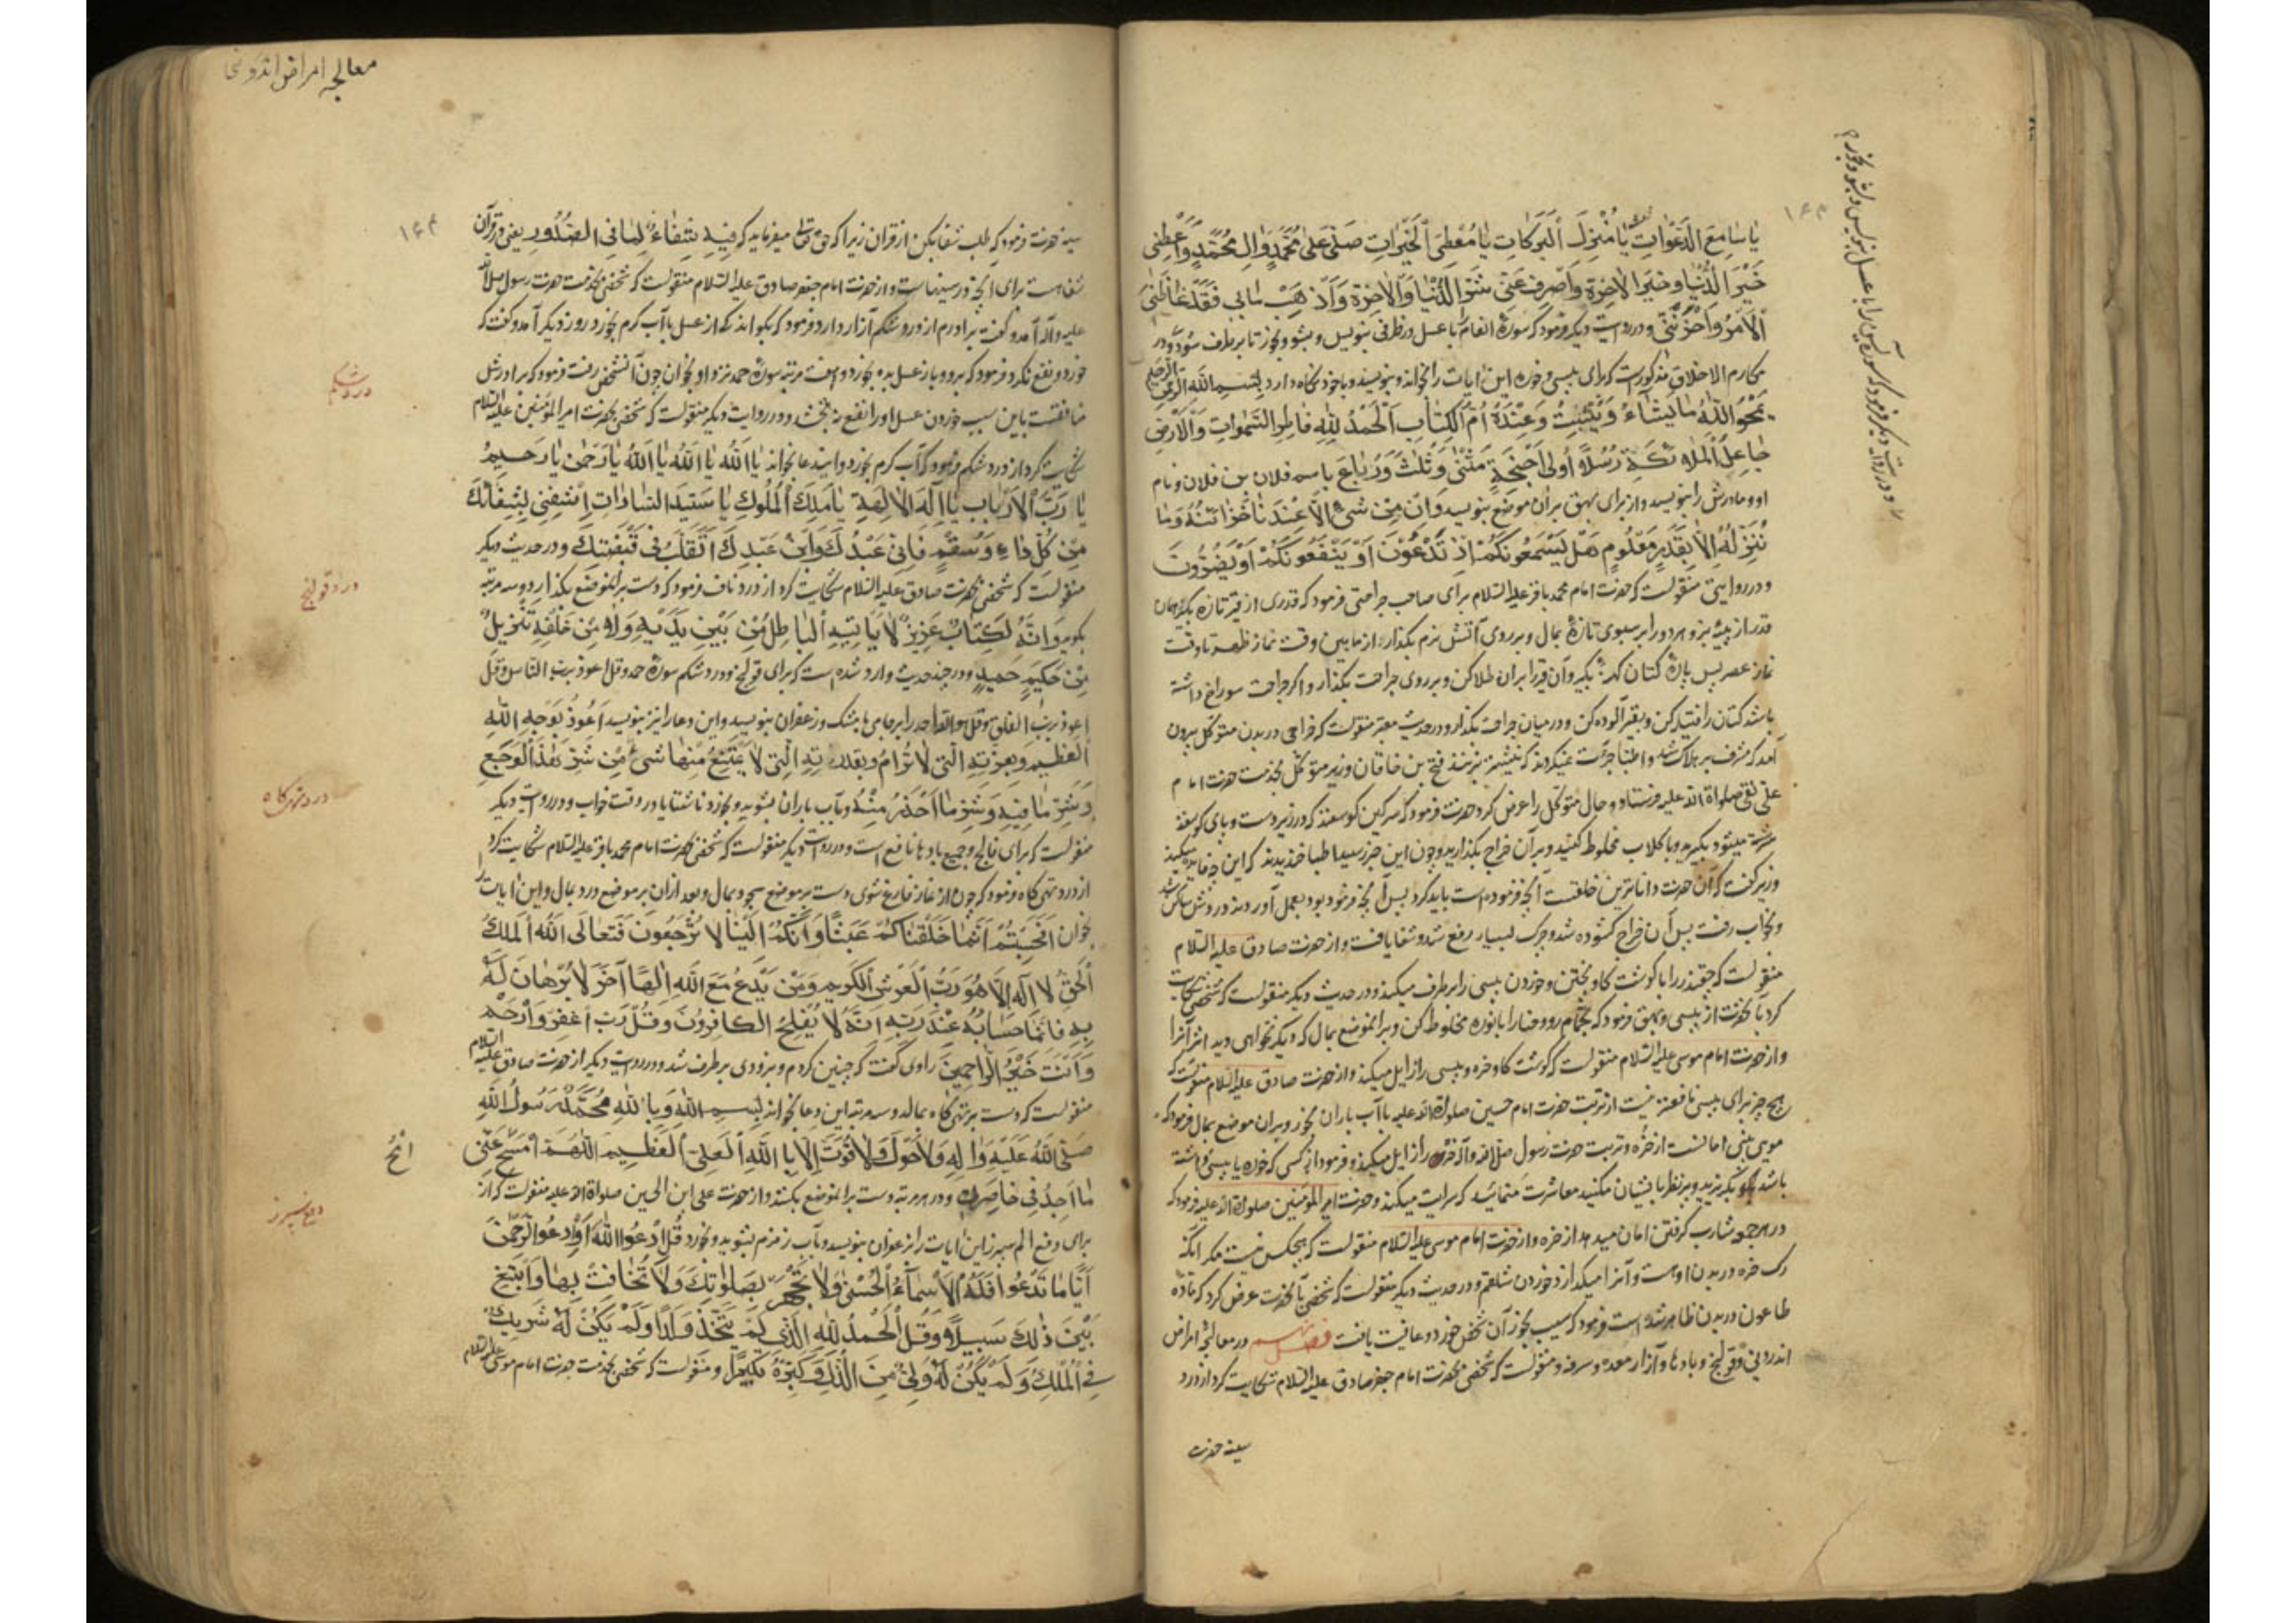 ۱۶۳
یٰا سٰامِعَ الدَّعَوٰاتِ یٰا مُنْزِلَ الْبَرَکٰاتِ یٰا مُعْطِیَ الْخَیْرٰاتِ صَلِّ عَلیٰ مُحَمَّدٍ وَاٰلِ مُحَمَّدٍ وَاَعْطِنی
خَیْرَ الدُّنْیٰا وَ خَیْرَ الْاٰخِرَةِ وَاصْرِفْ عَنّی شَرَّ الدُّنْیٰا وَالْاٰخِرَةِ وَاَذْهِبْ مٰا بی فَقَدْ غٰاظَنیٰ
الْاَمْرُ وَاَحْزَنَنی و در روایت دیگر فرمود که سورهٔ انعام با عسل در ظرفی بنویس و بشو و بخور تا برطرف شود و در
مکارم الاخلاق مذکور است که برای پیسی و خوره این ایات را بخواند و بنویسد و با خود نگاه دارد بِسْمِ اللّٰهِ الرَّحْمٰنِ الرَّحیمِ
یَمْحُو اللّٰهُ مٰا یَشٰاءُ وَیُثْبِتُ وَعِنْدَهُ اُمُّ الْکِتٰابِ اَلْحَمْدُ لِلّٰهِ فٰاطِرِ السَّمٰوٰاتِ وَالْاَرْضِ
جٰاعِلِ الْمَلٰئِکَةِ رُسُلًا اُولی اَجْنِحَةٍ مَثْنیٰ وَثُلٰثَ وَرُبٰاعَ باسم فلان بن فلان و نام
او و مادرش را بنویسد و از برای بهق بر ان موضع بنویسد وَاِنْ مِنْ شَیْءٍ اِلّٰا عِنْدَنٰا خَزٰائِنُهُ وَمٰا
نُنَزِّلُهُ اِلّٰا بِقَدَرٍ مَعْلُومٍ هَلْ یَسْمَعُونَکُمْ اِذْ تَدْعُونَ اَوْ یَنْفَعُونَکُمْ اَوْ یَضُرُّونَ
و در روایتی منقولست که حضرت امام محمد باقر علیه السلام برای صاحب جراحتی فرمود که قدری از قیر تازه بگیر و همان
قدر از پیه بز و هر دو را بر سبوی تازهٔ بمال و بر روی آتش نرم بگذار، از مابین وقت نماز ظهر تا وقت
نماز عصر پس پارهٔ کتان کهنه بگیر و آن قیر را بر ان طلا کن و بر روی جراحت بگذار و اگر جراحت سوراخ داشته
باشد کتان را فتیله کن و بقیر آلوده کن و در میان جراحت بگذار و در حدیث معتبر منقولست که خراجی در بدن متوکل بیرون
آمد که مشرف بر هلاک شد و اطبا جرأت نمیکردند که نیشتر بزنند فتح بن خاقان وزیر متوکل بخدمت حضرت امام
علی نقی صلواة الله علیه فرستاد و حال متوکل را عرض کرد حضرت فرمود که سرکین کوسفند که در زیر دست و پای کوسفند
میشود بگیرید و با کلاب مخلوط کنید و بر آن خراج بگذارید و چون این خبر رسید اطبا خندیدند که این چه فایده میکند
وزیر گفت که آن حضرت داناترین خلقست آنچه فرموده است باید کرد پس آنچه فرموده بود بعمل آوردند دردش ساکن شد
و بخواب رفت پس آن خراج کشوده شد و چرک بسیار دفع شد و شفا یافت و از حضرت صادق علیه السلام
منقولست که چقندر را با کوشت کاو پختن و خوردن پیسی را برطرف میکند و در حدیث دیگر منقولست که شخصی شکایت
کرد بآنحضرت از پیسی و بهق فرمود که بحمام رو و حنا را با نوره مخلوط کن و بر انموضع بمال که دیگر نخواهی دید اثر آنرا
و از حضرت امام موسی علیه السلام منقولست که کوشت کاو خره و پیسی را زایل میکند و از حضرت صادق علیه السلام منقولست که
هیچ چیز برای پیسی نافعتر نیست از تربت حضرت امام حسین صلواة الله علیه با آب باران بخور و بر ان موضع بمال و فرمود که
موی بینی امانست از خره و تربت حضرت رسول صلی الله و آله خره را زایل میکند و فرمود از کسی که خوره یا پیسی داشته
باشد بگریزید و نظر بایشان مکنید معاشرت منمائید که سرایت میکند و حضرت امیر المؤمنین صلواة الله علیه فرمود که
در هر جمعه شارب گرفتن امان میدهد از خره و از حضرت امام موسی علیه السلام منقولست که هیچکس نیست مگر آنکه
رک خره در بدن اوست و آنرا میکدازد خوردن شلغم و در حدیث دیگر منقولست که شخصی بآنحضرت عرض کرد که ماده
طاعون در بدن ظاهر شده است فرمود که سیب بخور آن شخص خورد و عافیت یافت فصل در معالجهٔ امراض
اندرونی و قولنج و بادها و آزار معده و سرفه و منقولست که شخصی بحضرت امام جعفر صادق علیه السلام شکایت کرد از درد
سینه حضرت
و در روایت دیگر فرمود که سوره یس را با عسل بنویس و بشو و بخور
معالجه امراض اندرونی
۱۶۴
سینه حضرت فرمود که طلب شفا بکن از قران زیرا که حق تعالی میفرماید که فیهِ شِفٰاءٌ لِمٰا فِی الصُّدُورِ یعنی در قرآن
شفاست برای آنچه در سینهاست و از حضرت امام جعفر صادق علیه السلام منقولست که شخصی بخدمت حضرت رسول صلی الله
علیه و آله آمد و گفت برادرم از درد شکم آزار دارد فرمود که بگو اندکی از عسل با آب گرم بخورد روز دیگر آمد و گفت که
خورد و نفع نکرد فرمود که برو و باز عسل بده بخورد و هفت مرتبه سورهٔ حمد نزد او بخوان چون آنشخص رفت فرمود که برادرش
منافقست باین سبب خوردن عسل او را نفع نبخشد و در روایت دیگر منقولست که شخصی بحضرت امیر المؤمنین علیه السلام
شکایت کرد از درد شکم فرمود که آب گرم بخورد و ایندعا بخواند یٰا اَللّٰهُ یٰا اَللّٰهُ یٰا اَللّٰهُ یٰا رَحْمٰنُ یٰا رَحیمُ
یٰا رَبَّ الْاَرْبٰابِ یٰا اِلٰهَ الْاٰلِهَةِ یٰا مَلِکَ الْمُلُوکِ یٰا سَیِّدَ السّٰادٰاتِ اِشْفِنی بِشِفٰائِکَ
مِنْ کُلِّ دٰاءٍ وَسُقْمٍ فَاِنّی عَبْدُکَ وَابْنُ عَبْدِکَ اَتَقَلَّبُ فی قَبْضَتِکَ و در حدیث دیگر
منقولست که شخصی بحضرت صادق علیه السلام شکایت کرد از درد ناف فرمود که دست بر انموضع بگذار و سه مرتبه
بگو وَاِنَّهُ لَکِتٰابٌ عَزیزٌ لٰا یَأْتیهِ الْبٰاطِلُ مِنْ بَیْنِ یَدَیْهِ وَلٰا مِنْ خَلْفِهِ تَنْزیلٌ
مِنْ حَکیمٍ حَمیدٍ و در چند حدیث وارد شده است که برای قولنج و درد شکم سورهٔ حمد و قل اعوذ برب الناس و قل
اعوذ برب الفلق و قل هو الله احد را بر جامی با مشک و زعفران بنویسد و این دعا را نیز بنویسد اَعُوذُ بِوَجْهِ اللّٰهِ
الْعَظیمِ وَبِعِزَّتِهِ الَّتی لٰا تُرٰامُ وَبِقُدْرَتِهِ الَّتی لٰا یَمْتَنِعُ مِنْهٰا شَیْءٌ مِنْ شَرِّ هٰذَا الْوَجَعِ
وَشَرِّ مٰا فیهِ وَشَرِّ مٰا اَحْذَرُ مِنْهُ و بآب باران بشوید و بخورد ناشتا یا در وقت خواب و در روایت دیگر
منقولست که برای فالج و جمیع بادها نافع است و در روایت دیگر منقولست که شخصی بحضرت امام محمد باقر علیه السلام شکایت کرد
از درد تهیکاه فرمود که چون از نماز فارغ شوی دست بر موضع سجود بمال و بعد از ان بر موضع درد بمال و این ایات را
بخوان اَفَحَسِبْتُمْ اَنَّمٰا خَلَقْنٰاکُمْ عَبَثًا وَاَنَّکُمْ اِلَیْنٰا لٰا تُرْجَعُونَ فَتَعٰالَی اللّٰهُ الْمَلِکُ
الْحَقُّ لٰا اِلٰهَ اِلّٰا هُوَ رَبُّ الْعَرْشِ الْکَریمِ وَمَنْ یَدْعُ مَعَ اللّٰهِ اِلٰهًا اٰخَرَ لٰا بُرْهٰانَ لَهُ
بِهِ فَاِنَّمٰا حِسٰابُهُ عِنْدَ رَبِّهِ اِنَّهُ لٰا یُفْلِحُ الْکٰافِرُونَ وَقُلْ رَبِّ اغْفِرْ وَارْحَمْ
وَاَنْتَ خَیْرُ الرّٰاحِمینَ راوی گفت که چنین کردم و بزودی برطرف شد و در روایت دیگر از حضرت صادق علیه السلام
منقولست که دست بر تهیگاه بمالد و سه مرتبه این دعا بخواند بِسْمِ اللّٰهِ وَبِاللّٰهِ مُحَمَّدٌ رَسُولُ اللّٰهِ
صَلَّی اللّٰهُ عَلَیْهِ وَاٰلِهِ وَلٰا حَوْلَ وَلٰا قُوَّةَ اِلّٰا بِاللّٰهِ الْعَلِیِّ الْعَظیمِ اَللّٰهُمَّ امْسَحْ عَنّی
مٰا اَجِدُ فی خٰاصِرَتی و در هر مرتبه دست بر انموضع بکشد و از حضرت علی ابن الحسین صلواة الله علیه منقولست که از
برای دفع الم سپرز این ایات را بزعفران بنویسد و بآب زمزم بشوید و بخورد قُلِ ادْعُوا اللّٰهَ اَوِ ادْعُوا الرَّحْمٰنَ
اَیًّا مٰا تَدْعُوا فَلَهُ الْاَسْمٰاءُ الْحُسْنیٰ وَلٰا تَجْهَرْ بِصَلٰوتِکَ وَلٰا تُخٰافِتْ بِهٰا وَابْتَغِ
بَیْنَ ذٰلِکَ سَبیلًا وَقُلِ الْحَمْدُ لِلّٰهِ الَّذی لَمْ یَتَّخِذْ وَلَدًا وَلَمْ یَکُنْ لَهُ شَریکٌ
فِی الْمُلْکِ وَلَمْ یَکُنْ لَهُ وَلِیٌّ مِنَ الذُّلِّ وَکَبِّرْهُ تَکْبیرًا و منقولست که شخصی بخدمت حضرت امام موسی علیه السلام
درد شکم
درد قولنج
درد تهیکاه
دفع سپرز